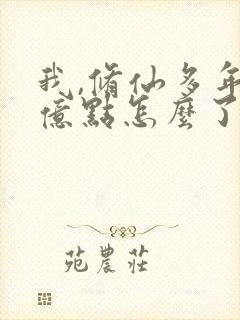 我,脩仙多年
億點怎麼了
苑農莊